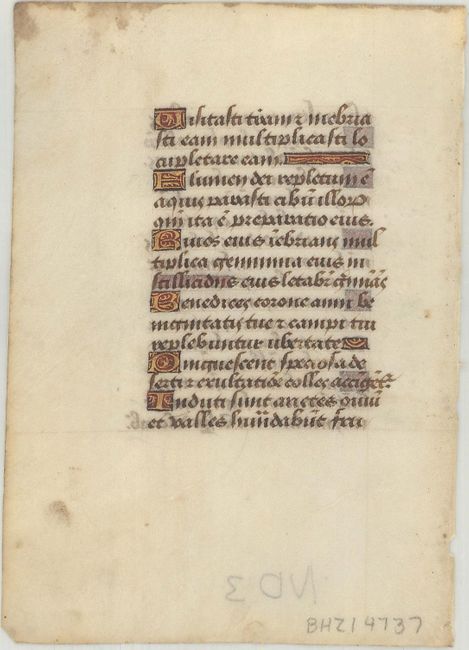 Visitasti trãm ⁊ inebria
sti eam multiplicasti lo
cupletare eam.
Flumen dei repletum ē
aquis parasti cibũ illoꝝ
qm̃ ita ē preparatio eius.
Riuos eius ĩebrians mul
tiplica geñimina eius in
stillicidiis eius letabr̃ gĩnãs
Benedices corone anni be
nignitatis tue ⁊ campi tui
replebuntur ubertate
Pinguescent speciosa de
serti ⁊ exultatiõe colles accigẽt᷑
Induti sunt arietes ouiũ
et valles hũdabũt fru
BHZ14737